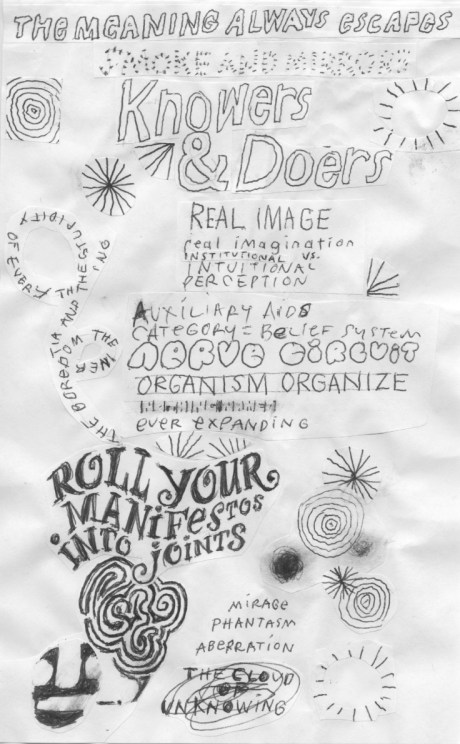 THE MEANING ALWAYS ESCAPES
SMOKE AND MIRRORS
Knowers
& Doers
REAL IMAGE
real imagination
INSTITUTIONAL VS.
INTUITIONAL
PERCEPTION
THE BOREDOM THE INERTIA AND THE STUPIDITY OF EVERYTHING
AUXILIARY AIDS
CATEGORY = BELIEF SYSTEM
NERVE CIRCUIT
ORGANISM ORGANIZE
ever expanding
ROLL YOUR
MANiFESTOS
iNTO JOINTS
MIRAGE
PHANTASM
ABERRATION
THE CLOUD
OF
UNKNOWING